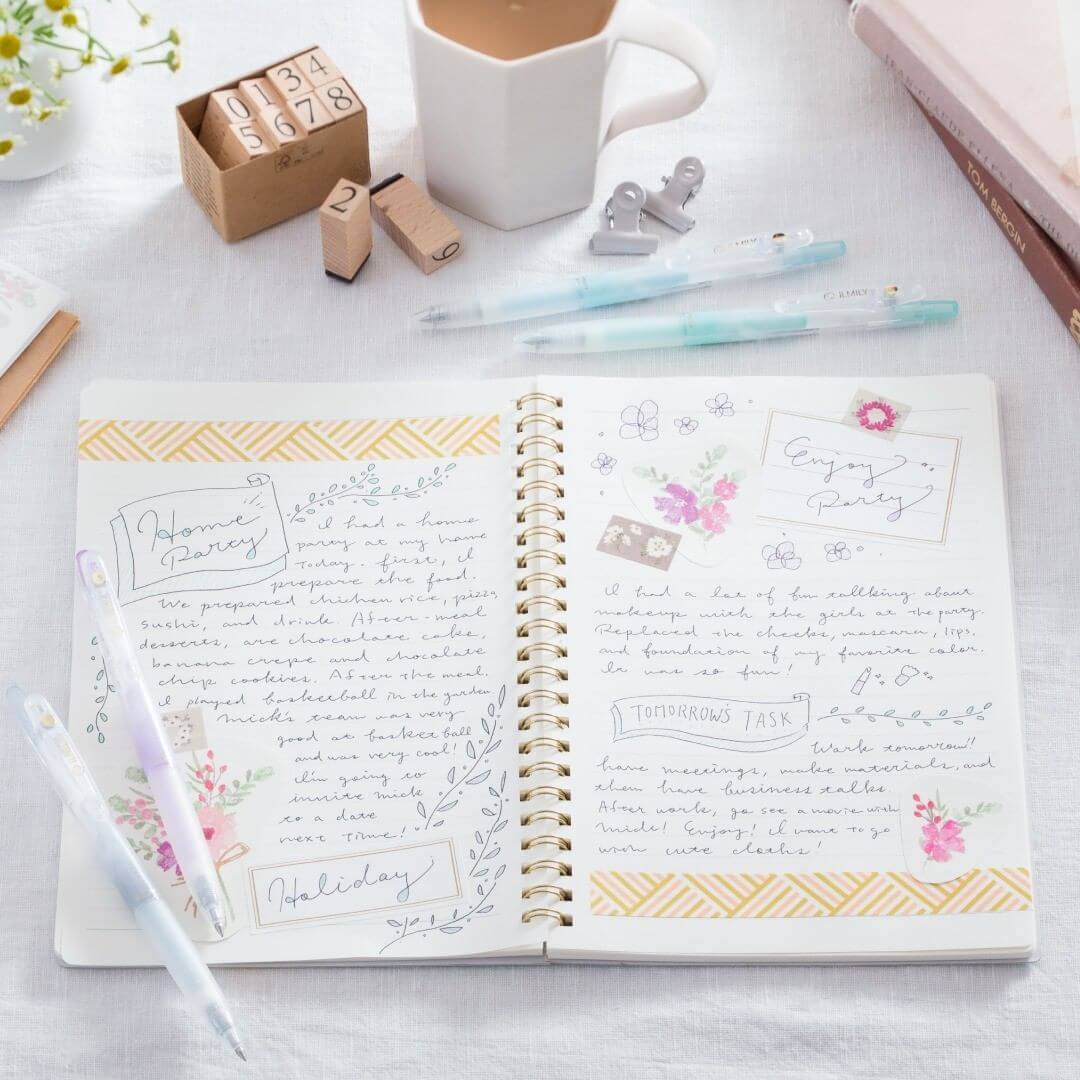 0 1 3 4
5 6 7 8
2
JEAN-CLAUDE ELLENA
TOM BERGIN
ILMILY
ILMILY
Home
Party
I had a home
party at my home
today. first, I
prepare the food.
We prepared chicken rice, pizza,
sushi, and drink. After-meal
desserts, are chocolate cake,
banana crepe and chocolate
chip cookies. After the meal.
I played basketball in the garden.
Mick's team was very
good at basketball
and was very cool!
I'm going to
invite mick
to a date
next time!
Holiday
Enjoy
Party
I had a lot of fun tallking about
makeup with the girls at the party.
Replaced the cheeks, mascara, lips,
and foundation of my favorite color.
It was so fun!
TOMORROW'S TASK
Work tomorrow!!
have meetings, make materials, and
them have business talks.
After work, go see a movie with
Mick! Enjoy! I want to go
with cute cloths!